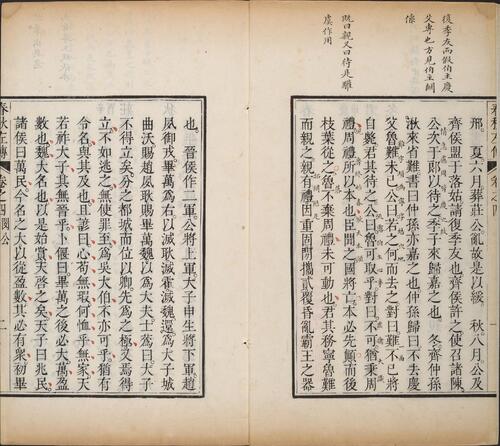 復季友而假伯主慶
父專也方見伯主酬
傺
既曰親又曰待是雖
虞作用
邢　夏六月葬莊公亂故是以緩　秋八月公及
齊侯盟于落姑請復季友也齊侯許之使召諸陳
公次于郎以待之季子來歸嘉之也　冬齊仲孫
湫來省難書曰仲孫亦嘉之也仲孫歸曰不去慶
父魯難未已公曰若之何而去之對曰難不已將
自斃君其待之公曰魯可取乎對曰不可猶秉周
禮周禮所以本也臣聞之國將亡本必先顛而後
枝葉從之魯不棄周禮未可動也君其務寧魯難
而親之親有禮因重固間攜貳覆昏亂霸王之器
也　晉侯作二軍公將上軍大子申生將下軍趙
夙御戎畢萬為右以滅耿滅霍滅魏還為大子城
曲沃賜趙夙耿賜畢萬魏以為大夫士蒍曰大子
不得立矣分之都城而位以卿先為之極又焉得
立不如逃之無使罪至為吳大伯不亦可乎猶有
令名與其及也且諺曰心苟無瑕何恤乎無家天
若祚大子其無晉乎卜偃曰畢萬之後必大萬盈
數也魏大名也以是始賞天啓之矣天子曰兆民
諸侯曰萬民今名之大以從盈數其必有衆初畢
春秋左傳　卷之四閔公　二